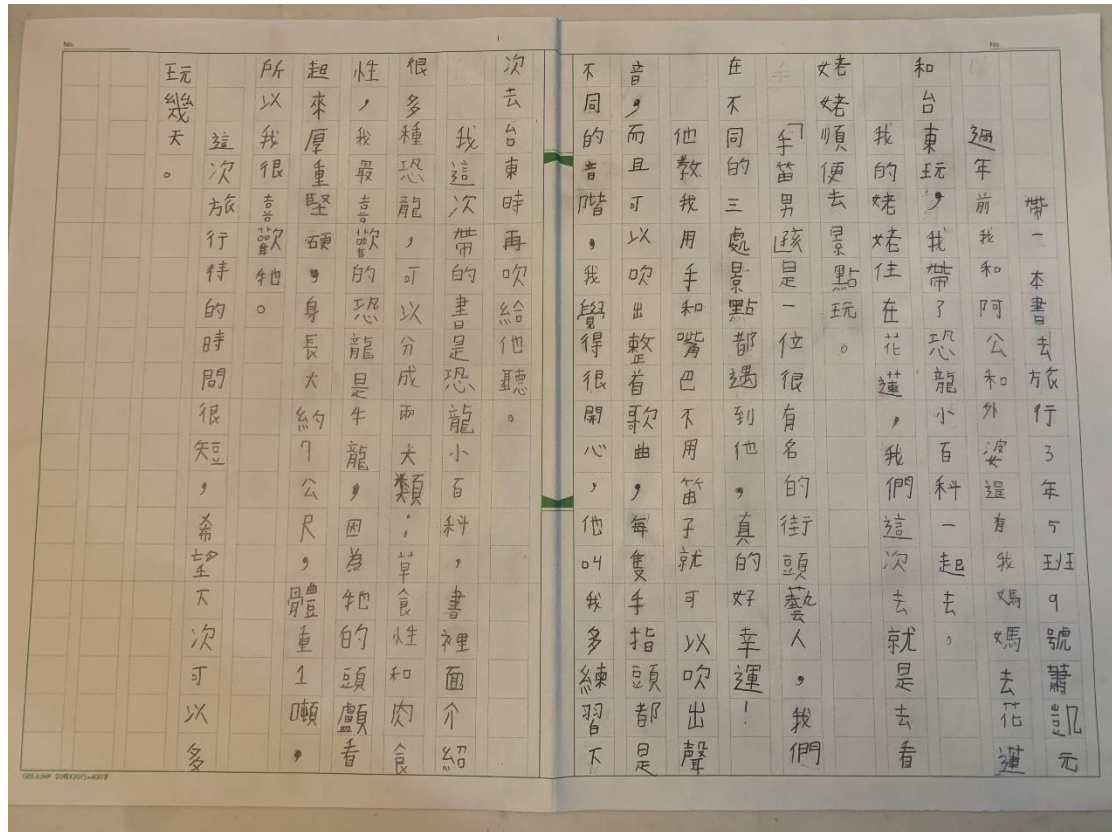 帶一本書去旅行3年5班9號蕭凱元
過年前我和阿公和外婆還有我媽媽去花蓮
和台東玩，我帶了恐龍小百科一起去，
我的姥姥住在花蓮，我們這次去就是去看
姥姥順便去景點玩。
「手笛男孩是一位很有名的街頭藝人，我們
在不同的三處景點都遇到他，真的好幸運！
他教我用手和嘴巴不用笛子就可以吹出聲
音，而且可以吹出整首歌曲，每隻手指頭都是
不同的音階，我覺得很開心，他叫我多練習下
次去台東時再吹給他聽。
我這次帶的書是恐龍小百科，書裡面介紹
很多種恐龍，可以分成兩大類：草食性和肉食
性，我最喜歡，的恐龍是牛龍，因為牠的頭顱看
起來厚重堅硬，身長大約7公尺，體重1噸，
所以我很喜歡牠。
這次旅行待的時間很短，希望下次可以多
玩幾天。
No.
No.
1
GEEJUMP 20格X20行=400字